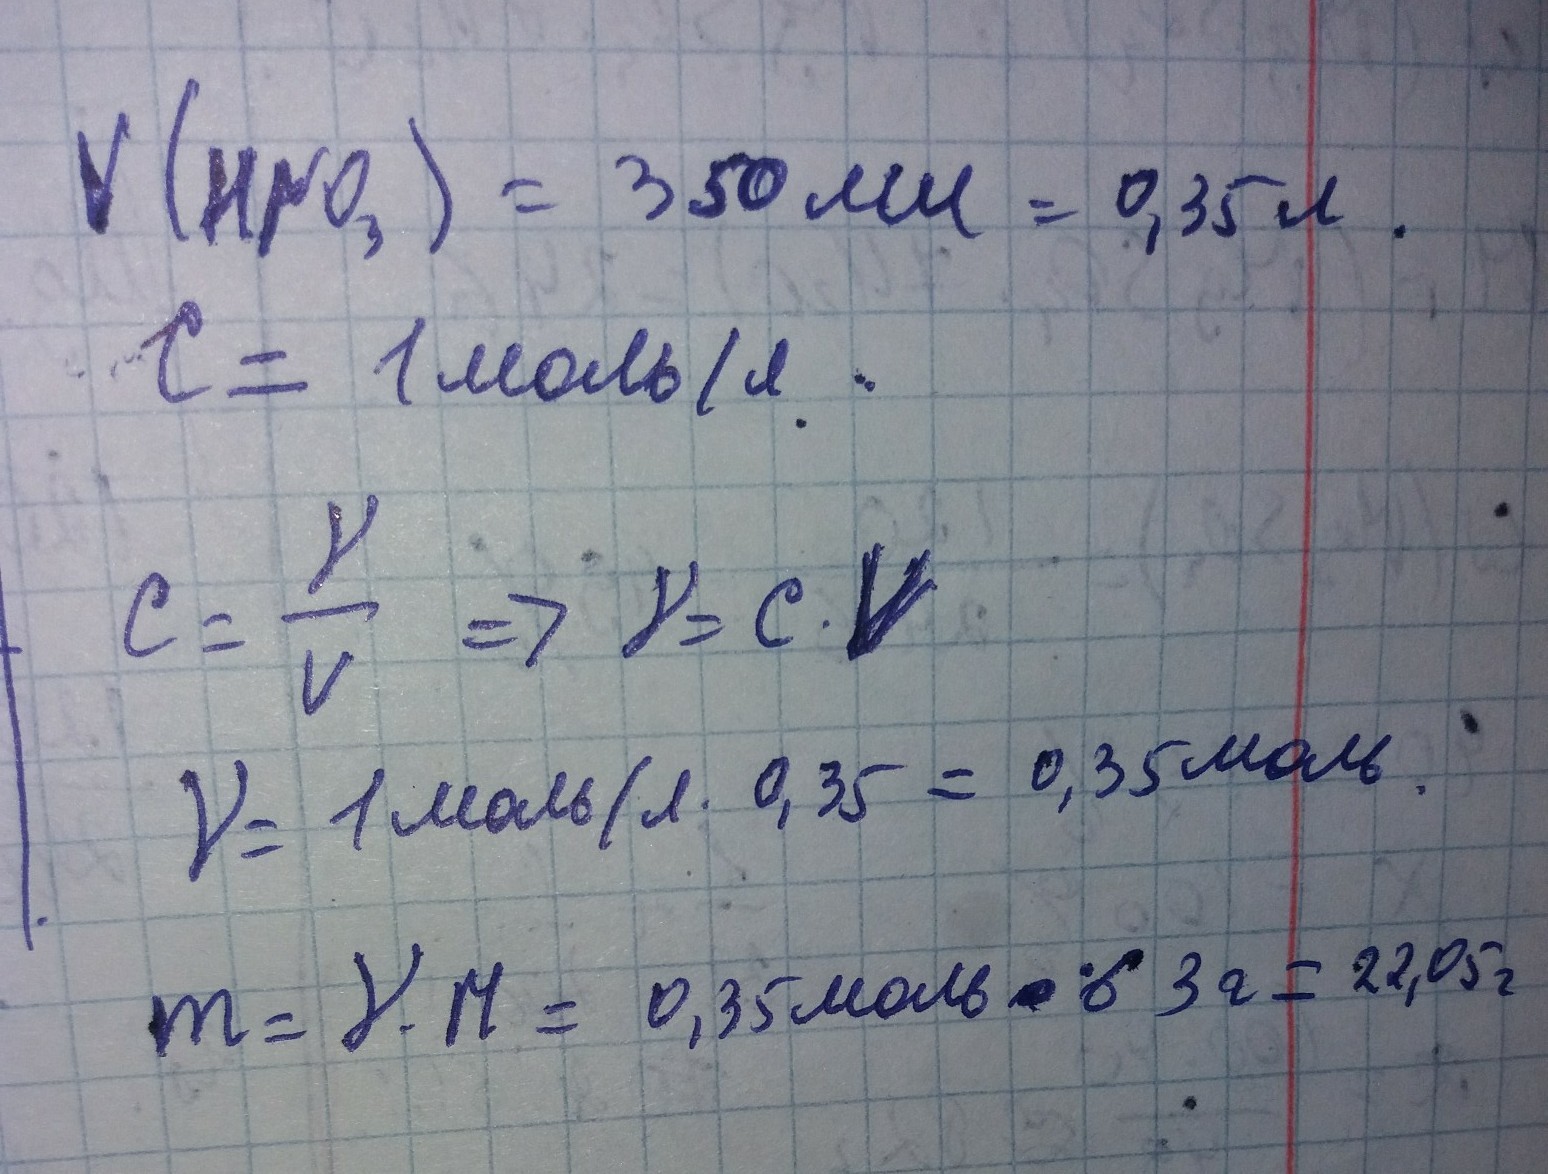 V(HNO₃) = 350 мл = 0,35 л.
C = 1 моль/л.
C = γ/V => γ = C · V
γ = 1 моль/л · 0,35 = 0,35 моль.
m = γ · M = 0,35 моль · 63 г = 22,05 г